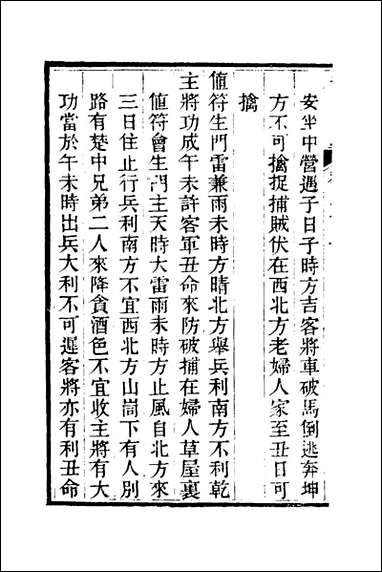 安坐中營遇子日子時方吉客將車破馬倒逃奔坤
方不可擒捉捕賊伏在西北方老婦人家至丑日可
擒
値符生門雷兼雨未時方晴北方舉兵利南方不利乾
主將功成午未許客軍丑命來防破捕在婦人草屋裏
値符會生門主天時大雷雨未時方止風自北方來
三日住止行兵利南方不宜西北方山崗下有人別
路有楚中兄弟二人來降貪酒色不宜收主將有大
功當於午未時出兵大利不可遲客將亦有利丑命